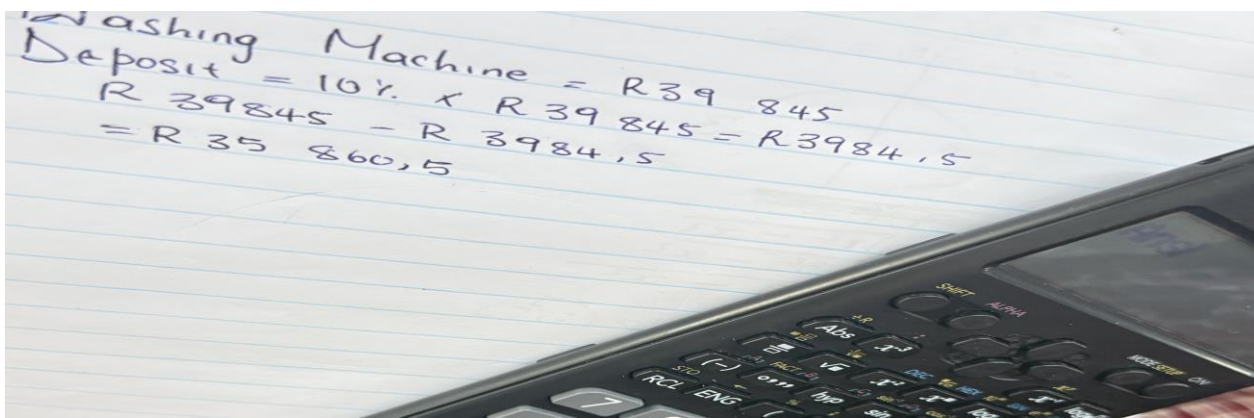 Washing Machine = R39 845
Deposit = 10% × R 39 845 = R3984,5
R 39845 - R 3984,5
= R 35 860,5
SHIFT ALPHA
MODE SETUP ON
Abs x³
(-) √ x²
RCL ENG hyp sin
STO FACT DEC HEX
7